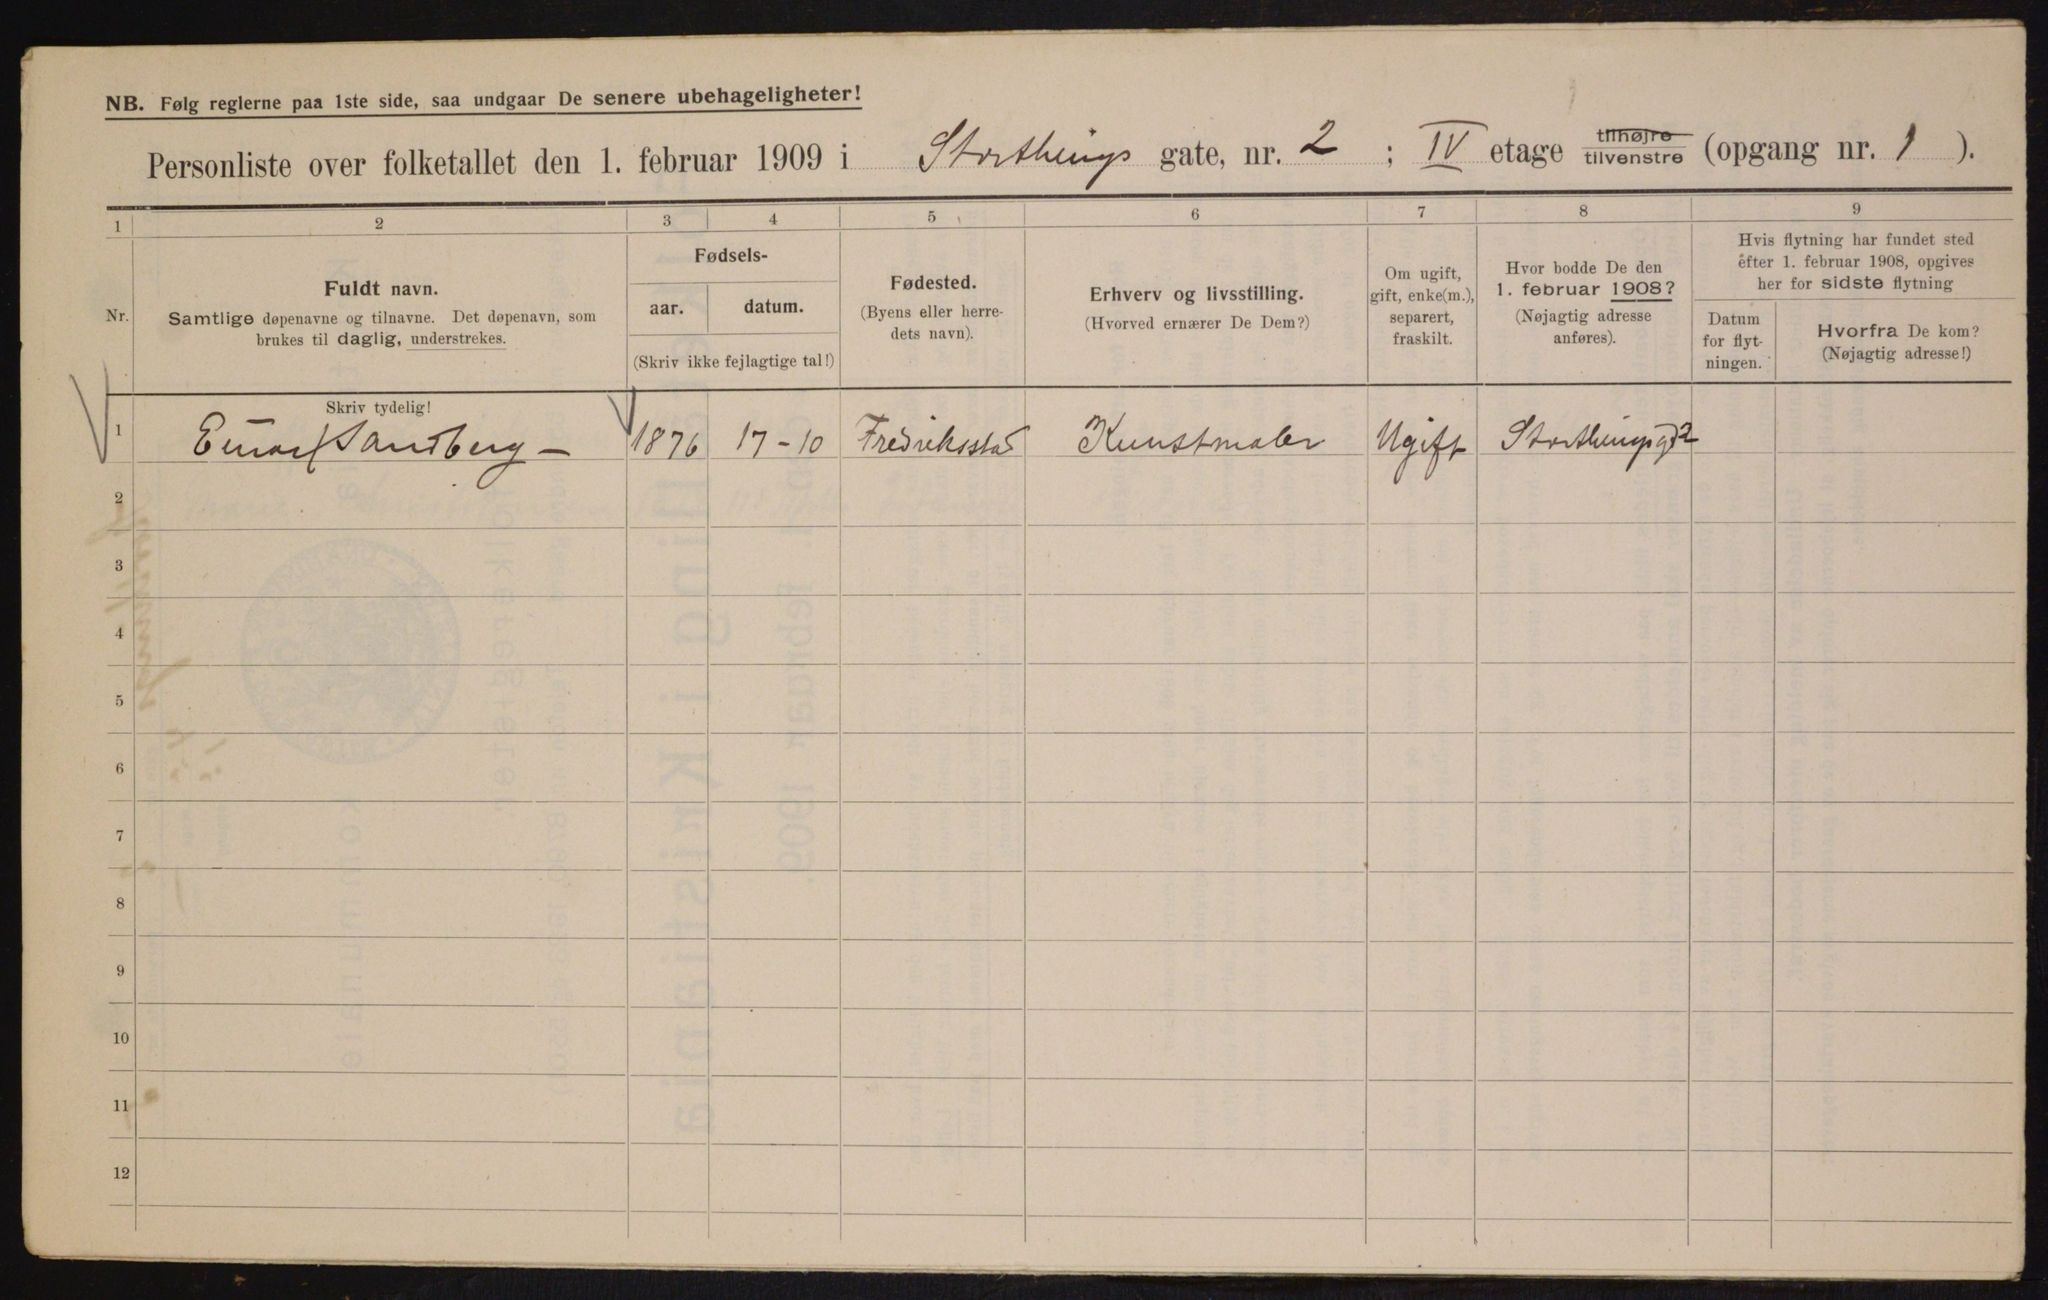 NB. Følg reglerne paa 1ste side, saa undgaar De senere ubehageligheter!
Personliste over folketallet den 1. februar 1909 i Storthings gate, nr. 2 ; IV etage tilhøjre tilvenstre (opgang nr. 1 ).
1 2 3 4 5 6 7 8 9
Nr.
Fuldt navn.
Samtlige døpenavne og tilnavne. Det døpenavn, som
brukes til daglig, understrekes.
Skriv tydelig!
Fødsels-
aar. datum.
(Skriv ikke fejlagtige tal!)
Fødested.
(Byens eller herre-
dets navn).
Erhverv og livsstilling.
(Hvorved ernærer De Dem?)
Om ugift,
gift, enke(m.),
separert,
fraskilt.
Hvor bodde De den
1. februar 1908?
(Nøjagtig adresse
anføres).
Hvis flytning har fundet sted
efter 1. februar 1908, opgives
her for sidste flytning
Datum
for flyt-
ningen.
Hvorfra De kom?
(Nøjagtig adresse!)
1 Einar Sandberg — 1876 17-10 Fredriksstad Kunstmaler Ugift Storthingsgd 2
2
3
4
5
6
7
8
9
10
11
12